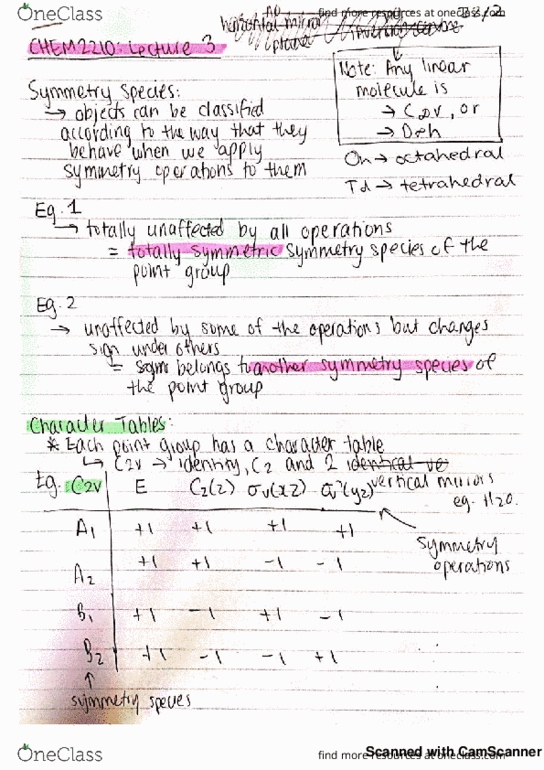 OneClass
find more resources at oneclass.com
no
horizontal mirror
plane
CHEM2210: Lecture 3
Note: Any linear
molecule is
→ C∞v, or
→ D∞h
Oh → octahedral
Td → tetrahedral
Symmetry Species:
↳ objects can be classified
according to the way that they
behave when we apply
symmetry operations to them
Eg. 1
↳ totally unaffected by all operations
= totally symmetric symmetry species of the
point group
Eg. 2
→ unaffected by some of the operations but changes
sign under others
= belongs to another symmetry species of
the point group
Character Tables:
* Each point group has a character table
↳ C2v → identity, C2 and 2 identical ve
vertical mirrors
eg. H2O.
Eg. C2v E C2(z) σv(xz) σv'(yz)
A1 +1 +1 +1 +1
A2 +1 +1 -1 -1
B1 +1 -1 +1 -1
B2 +1 -1 -1 +1
symmetry
operations
symmetry species
OneClass
find more resources at oneclass.com
Scanned with CamScanner